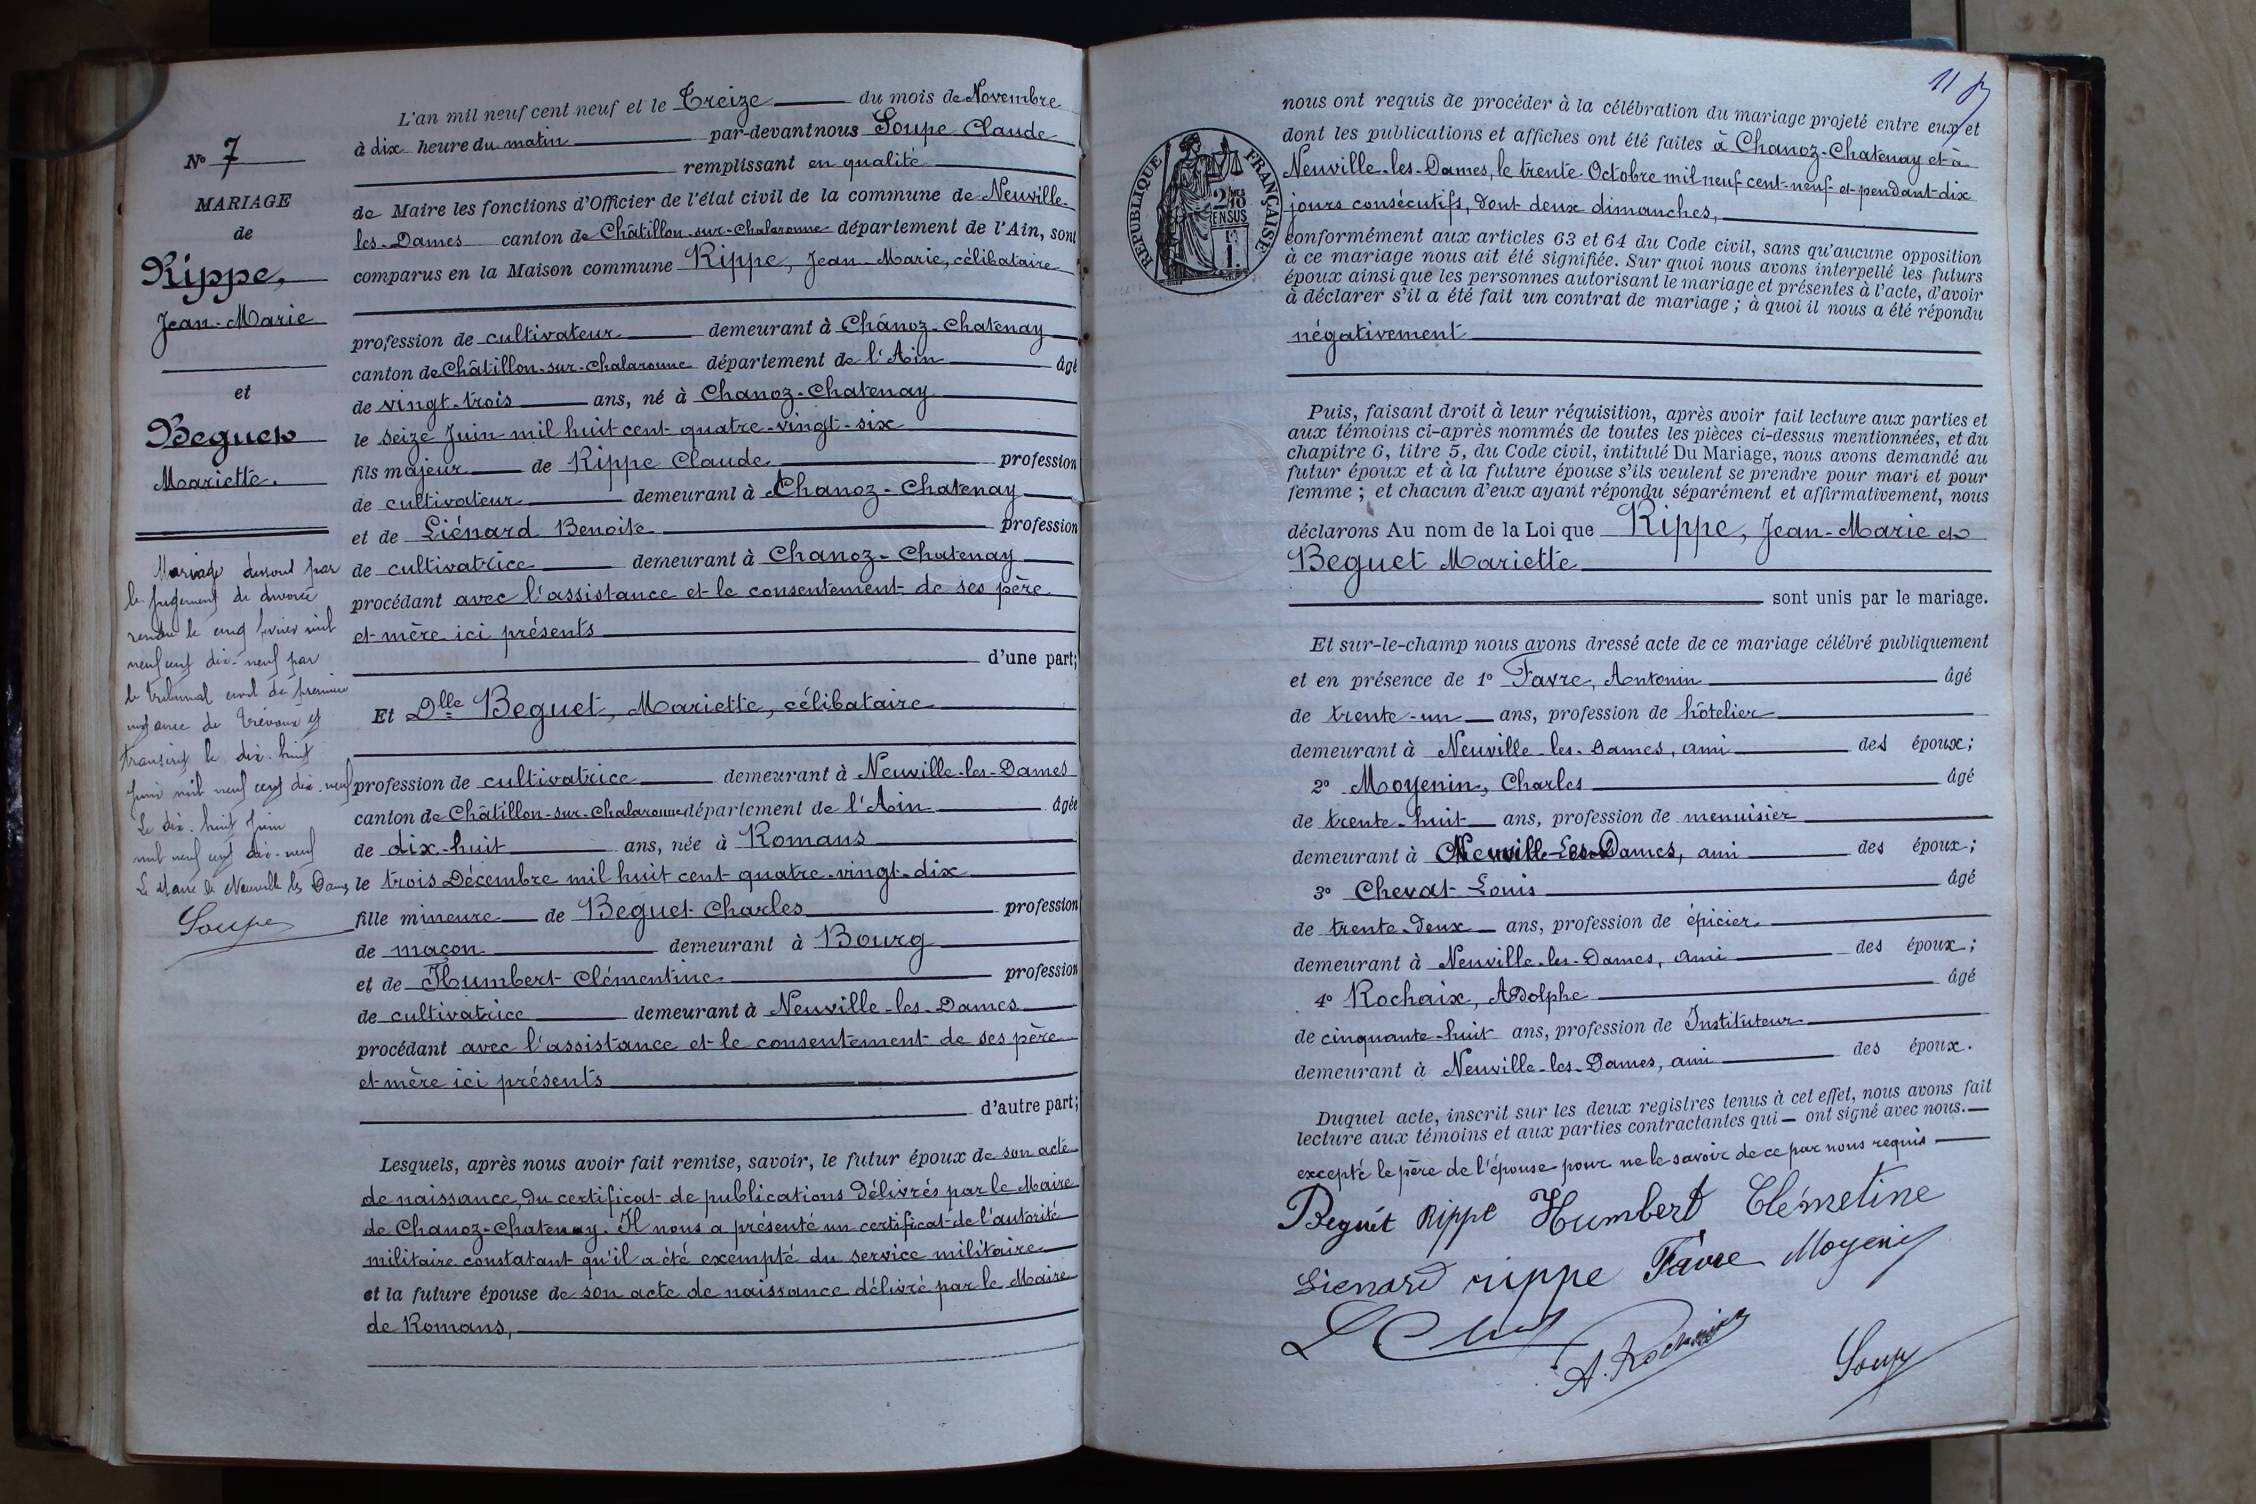 N° 7
MARIAGE
de
Rippe,
Jean-Marie
et
Beguet
Mariette.
Mariage dissout par
le jugement de divorce
rendu le cinq février mil
neuf cent dix-neuf par
le tribunal civil de première
instance de Trévoux et
transcrit le dix-huit
Juin mil neuf cent dix-neuf
Le dix-huit Juin
mil neuf cent dix-neuf
Le Maire de Neuville les Dames
Soupe
L'an mil neuf cent neuf et le Treize du mois de Novembre
à dix heure du matin par-devant nous Soupe Claude
remplissant en qualité
de Maire les fonctions d'Officier de l'état civil de la commune de Neuville-
les-Dames canton de Châtillon-sur-Chalaronne département de l'Ain, sont
comparus en la Maison commune Rippe, Jean-Marie, célibataire
profession de cultivateur demeurant à Chânoz-Chatenay
canton de Châtillon-sur-Chalaronne département de l'Ain âgé
de vingt-trois ans, né à Chanoz-Chatenay
le seize Juin mil huit cent quatre-vingt-six
fils majeur de Rippe Claude profession
de cultivateur demeurant à Chanoz-Chatenay
et de Liénard Benoite profession
de cultivatrice demeurant à Chanoz-Chatenay
procédant avec l'assistance et le consentement de ses père
et mère ici présents
d'une part;
Et Dlle Beguet, Mariette, célibataire
profession de cultivatrice demeurant à Neuville-les-Dames
canton de Châtillon-sur-Chalaronne département de l'Ain âgée
de dix-huit ans, née à Romans
le trois Décembre mil huit cent quatre-vingt-dix
fille mineure de Beguet Charles profession
de maçon demeurant à Bourg
et de Humbert Clémentine profession
de cultivatrice demeurant à Neuville-les-Dames
procédant avec l'assistance et le consentement de ses père
et mère ici présents
d'autre part;
Lesquels, après nous avoir fait remise, savoir, le futur époux de son acte
de naissance, du certificat de publications délivrés par le Maire
de Chanoz-Chatenay. Il nous a présenté un certificat de l'autorité
militaire constatant qu'il a été exempté du service militaire
et la future épouse de son acte de naissance délivré par le Maire
de Romans,
11
RÉPUBLIQUE FRANÇAISE
2/10 EN SUS
nous ont requis de procéder à la célébration du mariage projeté entre eux et
dont les publications et affiches ont été faites à Chanoz-Chatenay et à
Neuville-les-Dames, le trente Octobre mil neuf cent-neuf et pendant dix
jours consécutifs, dont deux dimanches,
conformément aux articles 63 et 64 du Code civil, sans qu'aucune opposition
à ce mariage nous ait été signifiée. Sur quoi nous avons interpellé les futurs
époux ainsi que les personnes autorisant le mariage et présentes à l'acte, d'avoir
à déclarer s'il a été fait un contrat de mariage ; à quoi il nous a été répondu
négativement
Puis, faisant droit à leur réquisition, après avoir fait lecture aux parties et
aux témoins ci-après nommés de toutes les pièces ci-dessus mentionnées, et du
chapitre 6, titre 5, du Code civil, intitulé Du Mariage, nous avons demandé au
futur époux et à la future épouse s'ils veulent se prendre pour mari et pour
femme ; et chacun d'eux ayant répondu séparément et affirmativement, nous
déclarons Au nom de la Loi que Rippe, Jean-Marie et
Beguet Mariette
sont unis par le mariage.
Et sur-le-champ nous avons dressé acte de ce mariage célébré publiquement
et en présence de 1° Favre, Antonin âgé
de trente-un ans, profession de hôtelier
demeurant à Neuville-les-Dames, ami des époux;
2° Moyenin, Charles âgé
de trente-huit ans, profession de menuisier
demeurant à Neuville-les-Dames, ami des époux;
3° Chevat Louis âgé
de trente-deux ans, profession de épicier
demeurant à Neuville-les-Dames, ami des époux;
4° Rochaix, Adolphe âgé
de cinquante-huit ans, profession de Instituteur
demeurant à Neuville-les-Dames, ami des époux.
Duquel acte, inscrit sur les deux registres tenus à cet effet, nous avons fait
lecture aux témoins et aux parties contractantes qui ont signé avec nous.
excepté le père de l'épouse pour ne le savoir de ce par nous requis
Beguét Rippe Humbert Clémetine
Lienard rippe Favre Moyenin
L Chevat
A. Rochaix
Soupe